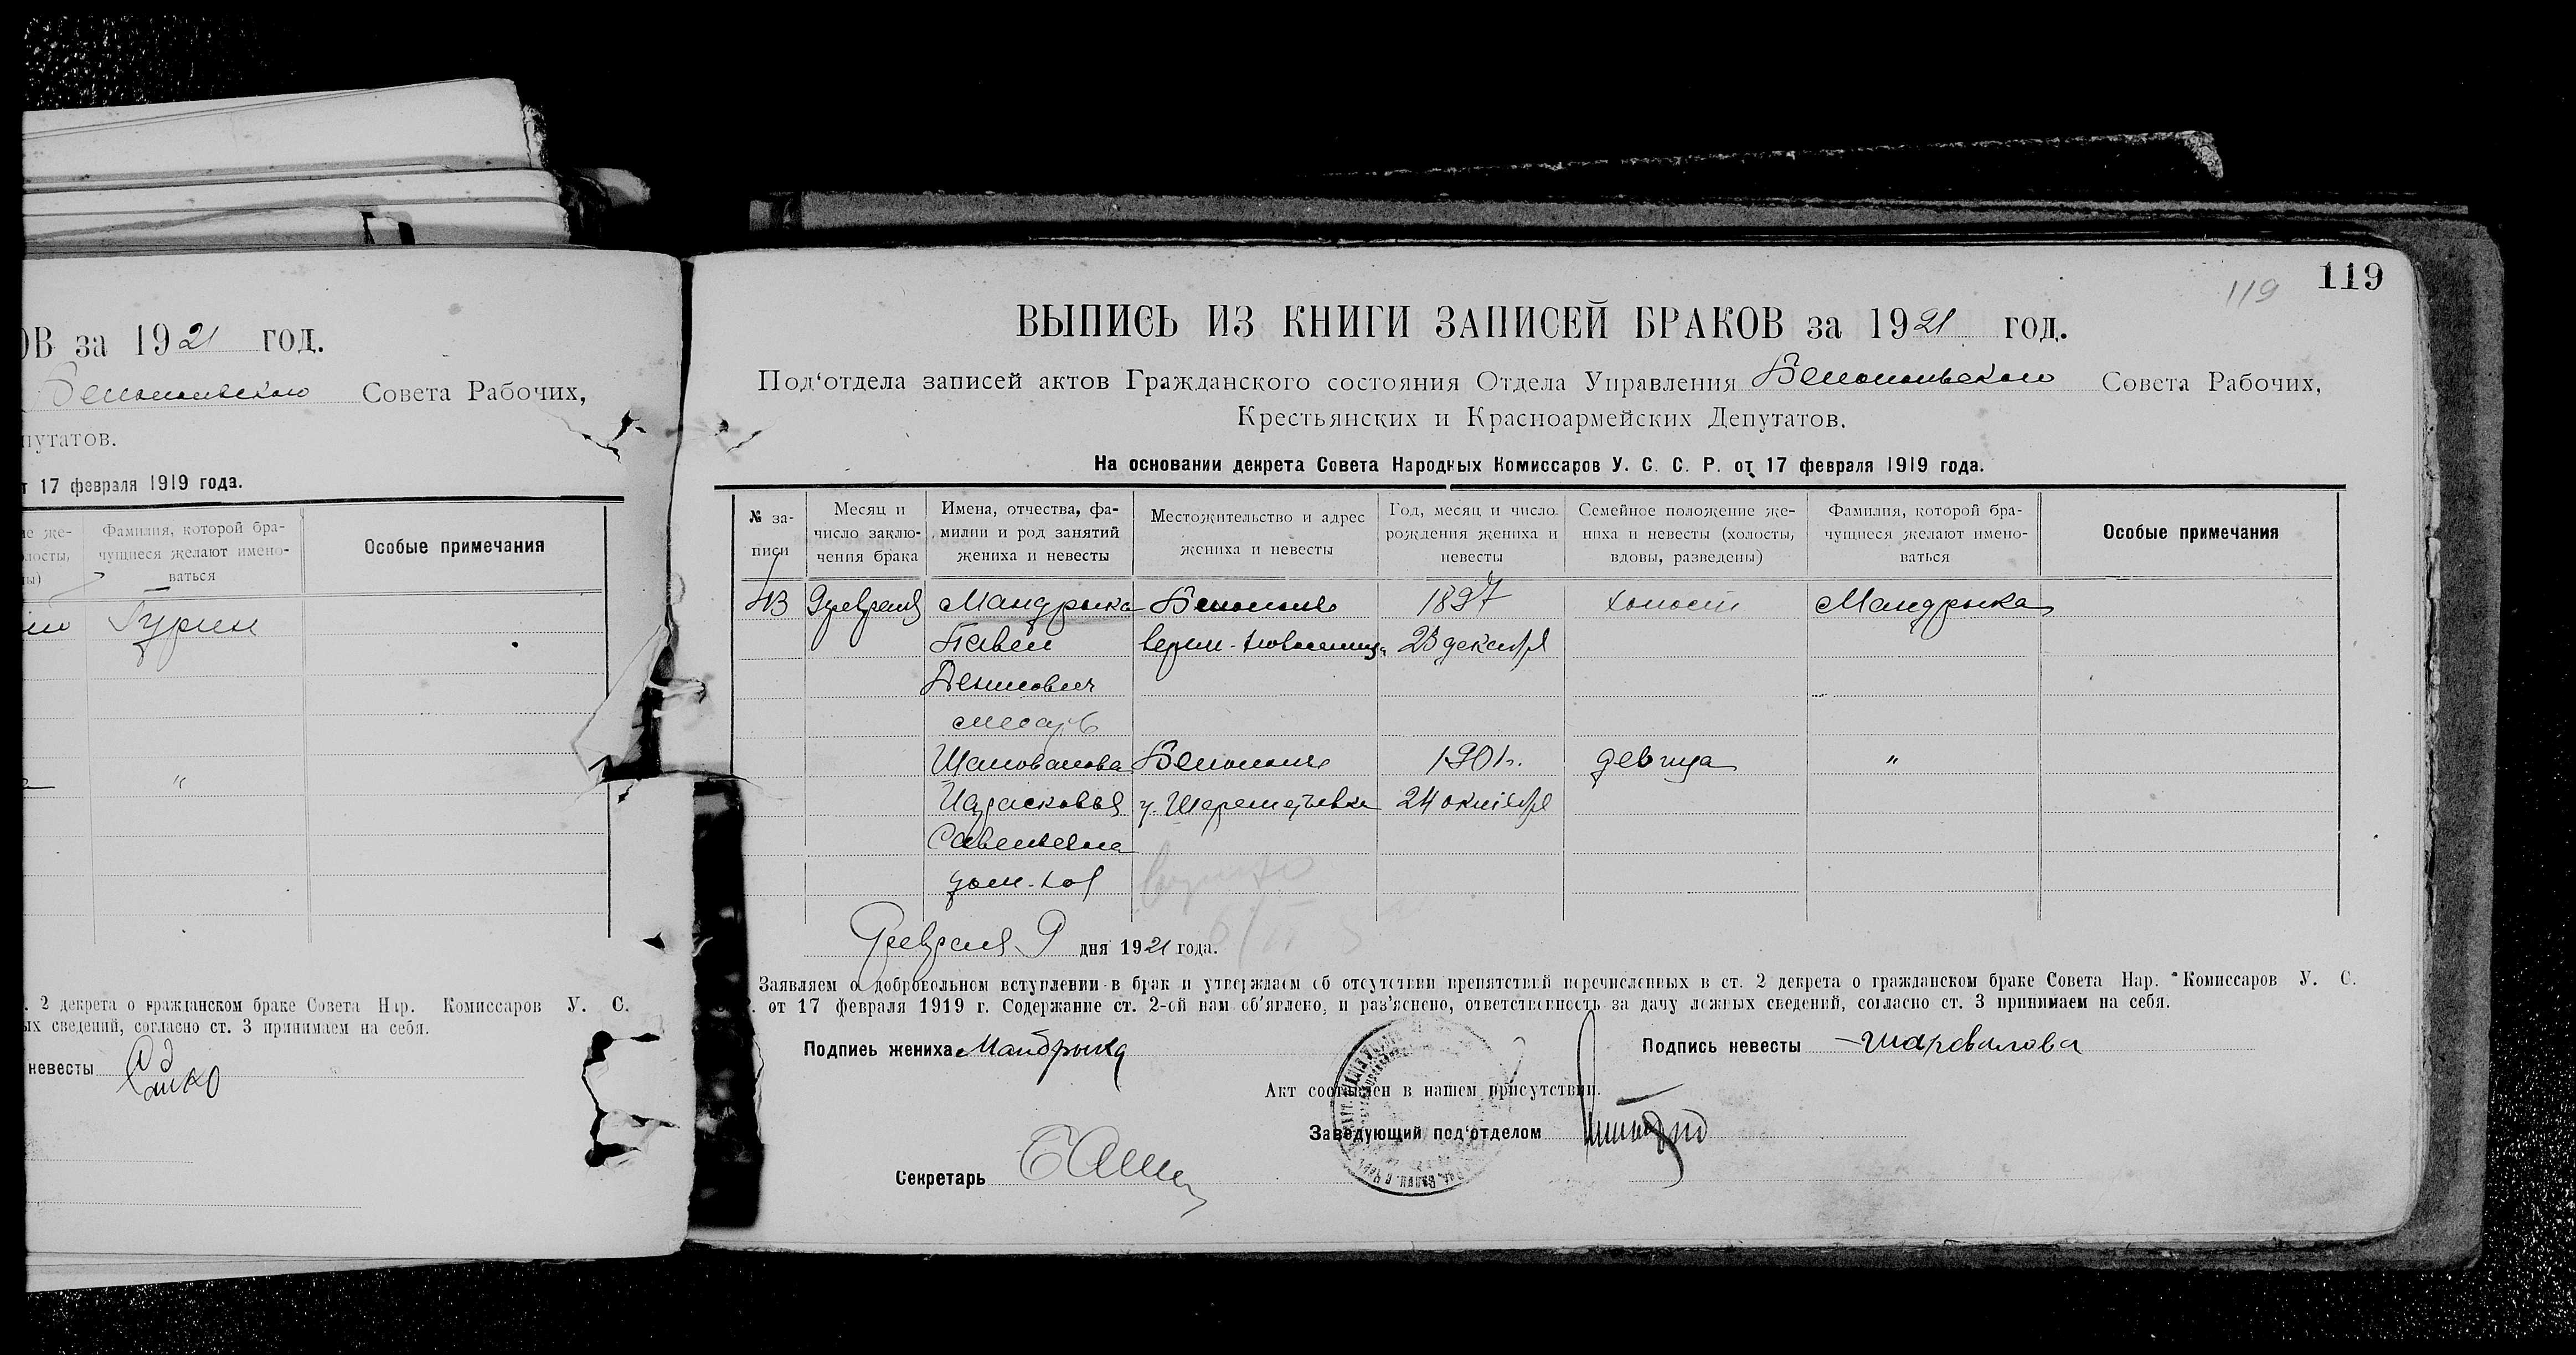 ОВ за 1921 год.
Белопольского Совета Рабочих,
путатов.
т 17 февраля 1919 года.
ие же-
лосты,
ны)
Фамилия, которой бра-
чущиеся желают имено-
ваться
Особые примечания
Гурин
"
. 2 декрета о гражданском браке Совета Нар. Комиссаров У. С.
ых сведений, согласно ст. 3 принимаем на себя.
невесты
119
119
ВЫПИСЬ ИЗ КНИГИ ЗАПИСЕЙ БРАКОВ за 1921 год.
Под‘отдела записей актов Гражданского состояния Отдела Управления Белопольского Совета Рабочих,
Крестьянских и Красноармейских Депутатов.
На основании декрета Совета Народных Комиссаров У. С. С. Р. от 17 февраля 1919 года.
№ за-
писи
Месяц и
число заклю-
чения брака
Имена, отчества, фа-
милии и род занятий
жениха и невесты
Местожительство и адрес
жениха и невесты
Год, месяц и число
рождения жениха и
невесты
Семейное положение же-
ниха и невесты (холосты,
вдовы, разведены)
Фамилия, которой бра-
чущиеся желают имено-
ваться
Особые примечания
43 9 февраля Мандрыка Белополье 1897 холост Мандрыка
Павел 23 декабря
Денисович
слесарь
Шаповалова Белополье 1901 г. девица "
Парасковья 24 октября
Савельевна
дом. хоз
Февраля 9 дня 1921 года.
Заявляем о добровольном вступлении в брак и утверждаем об отсутствии препятствий перечисленных в ст. 2 декрета о гражданском браке Совета Нар. Комиссаров У. С.
. от 17 февраля 1919 г. Содержание ст. 2-ой нам об‘яглено, и раз‘яснено, ответственность за дачу ложных сведений, согласно ст. 3 принимаем на себя.
Подпись жениха Мандрыка Подпись невесты Шаровалова
Акт составлен в нашем присутствии.
Заведующий под‘отделом
Секретарь